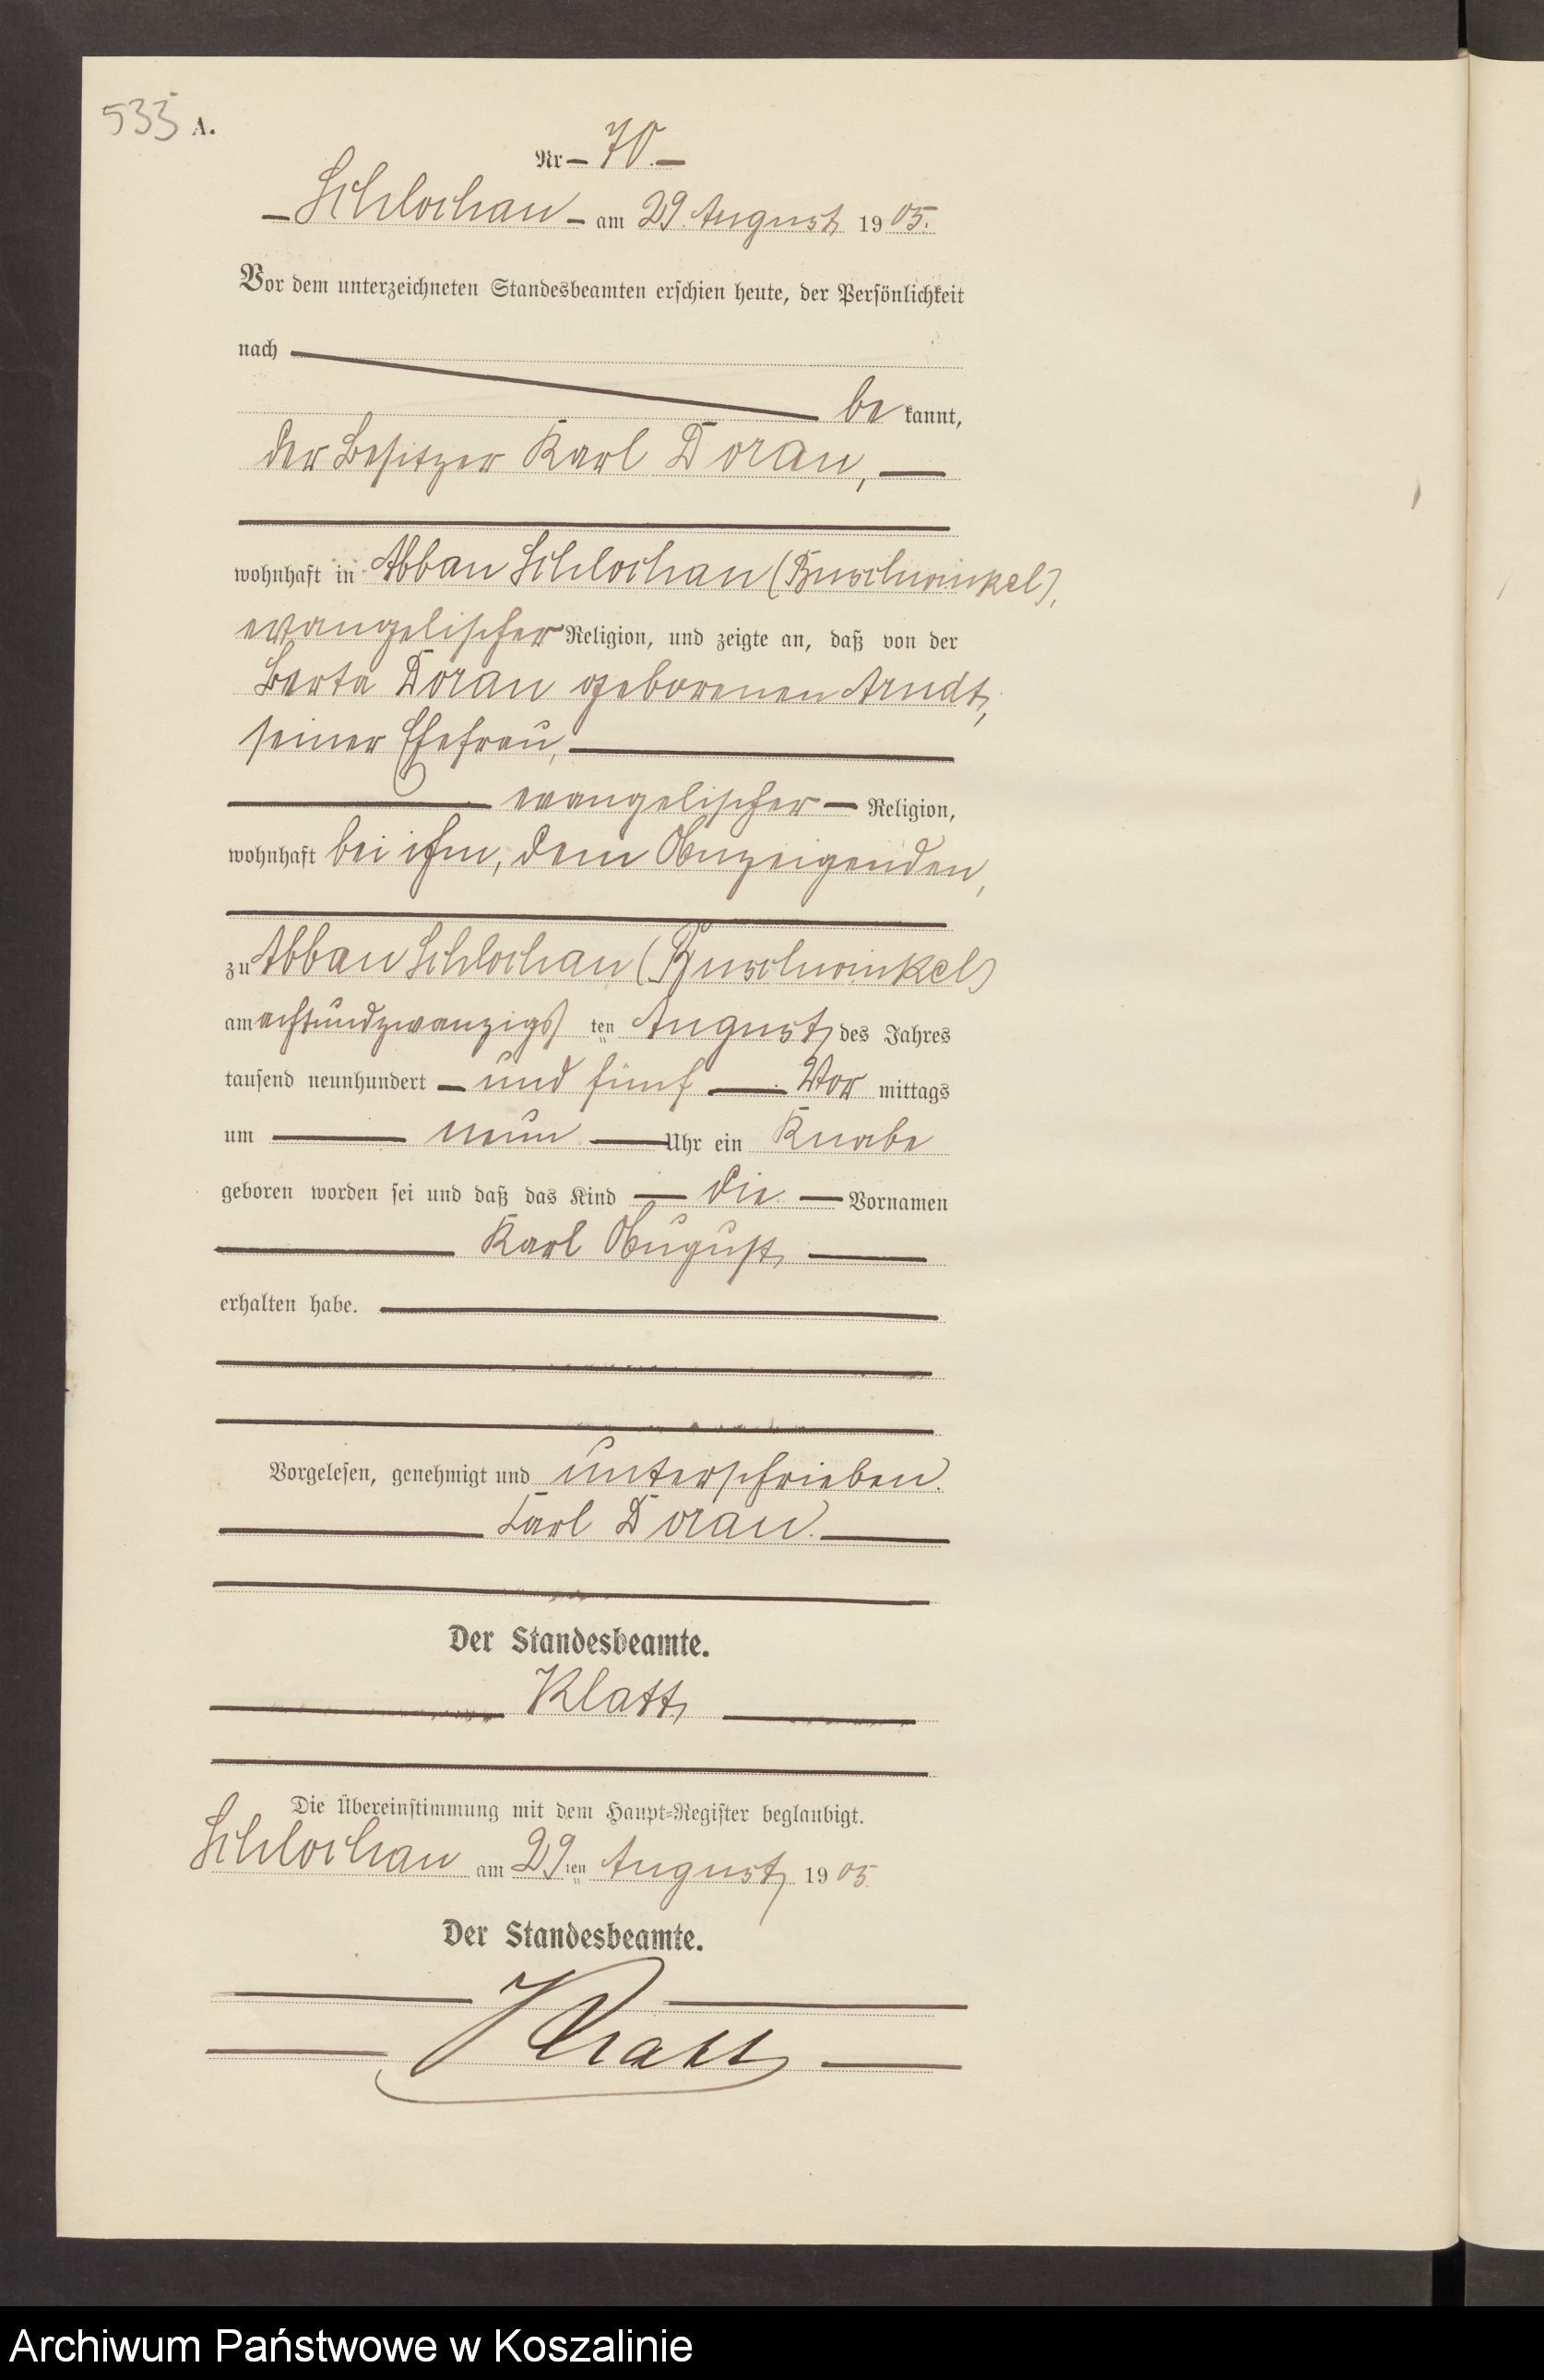 533 A.
Nr – 70. –
– Schlochau – am 29. August 1905.
Vor dem unterzeichneten Standesbeamten erschien heute, der Persönlichkeit
nach
be kannt,
der Besitzer Karl Dorau,
wohnhaft in Abbau Schlochau (Buschwinkel),
evangelischer Religion, und zeigte an, daß von der
Berta Dorau geborenen Arndt,
seiner Ehefrau,
evangelischer – Religion,
wohnhaft bei ihm, dem Anzeigenden,
zu Abbau Schlochau (Buschwinkel)
am achtundzwanzigsten August des Jahres
tausend neunhundert – und fünf – Vor mittags
um – neun – Uhr ein Knabe
geboren worden sei und daß das Kind – die – Vornamen
Karl August
erhalten habe.
Vorgelesen, genehmigt und unterschrieben.
Karl Dorau.
Der Standesbeamte.
Klatt
Die Übereinstimmung mit dem Haupt-Register beglaubigt.
Schlochau am 29ten August 1905.
Der Standesbeamte.
Klatt
Archiwum Państwowe w Koszalinie